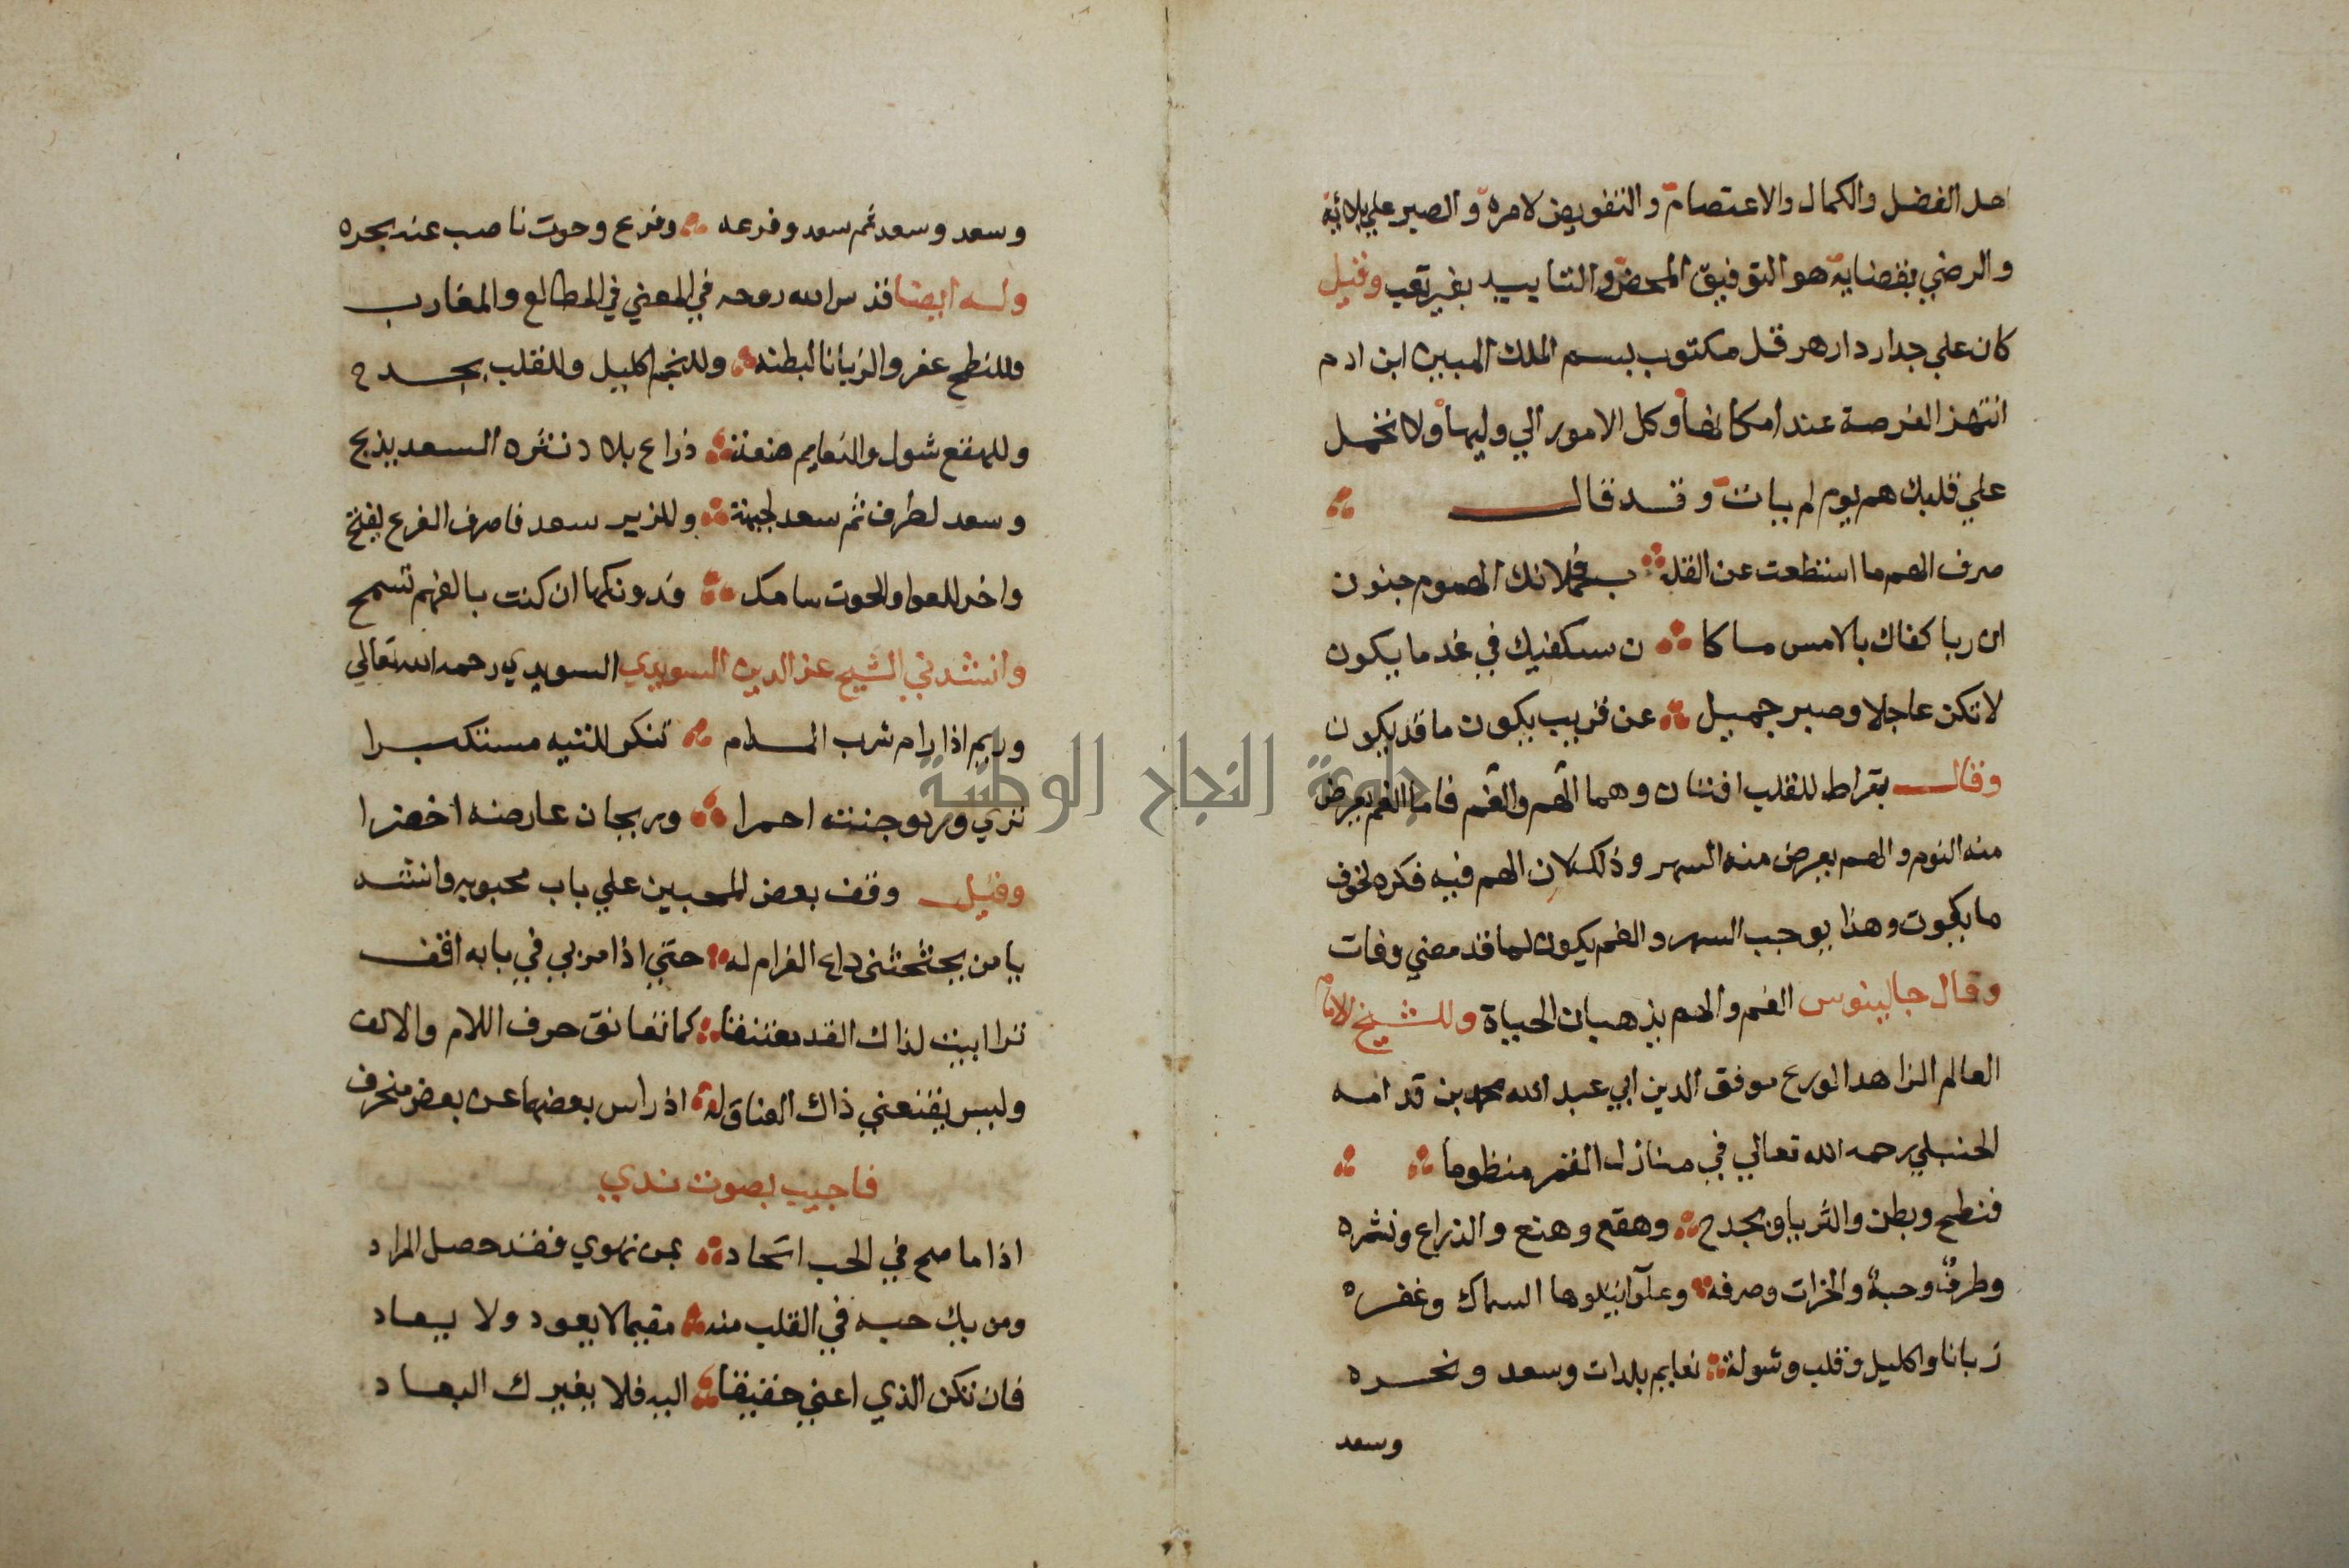 اهل الفضل والكمال والاعتصام والتفويض لامره والصبر علي بلائه
والرضي بقضايه هو التوفيق المحض والتاييد بغير تعب وقيل
كان علي جدار دار هرقل مكتوب بسم الملك المبين ابن ادم
انتهز الفرصة عند امكانها وكل الامور الي وليها ولا تحمل
علي قلبك هم يوم لم يات وقد قال
صرف الهم ما استطعت عن القلب فحملانك الهموم جنون
ان ربا كفاك بالامس ما كا ن سيكفيك في غد ما يكون
لا تكن عاجلا وصبر جميل عن قريب يكون ما قد يكون
وقال بقراط للقلب افتان وهما الهم والغم فاما الغم يعرض
منه النوم والهم يعرض منه السهر وذلك لان الهم فيه فكره لخوف
ما يكون وهذا يوجب السهر والغم يكون لما قد مضي وفات
وقال جالينوس الغم والهم يذهبان الحياة وللشيخ الامام
العالم الزاهد الورع موفق الدين ابي عبد الله محمد بن قدامه
الحنبلي رحمه الله تعالي في منازل القمر منظوما
فنطح وبطن والثريا وبجدح وهقع وهنع والذراع ونثره
وطرف وجبة والخرات وصرفه وعوا يتلوها السماك وغفره
زبانا واكليل وقلب وشولة نعايم بلدات وسعد ونحره
وسعد
وسعد وسعد ثم سعد وفرعه وفرع وحوت ناصب عنه بحره
وله ايضا قدس الله روحه في المعني في المطالع والمغارب
وللنطح غفر والزبانا لبطنه وللنجم اكليل وللقلب بجدح
وللهقع شول والنعايم هنعة ذراع بلاد نثره السعد يذبح
وسعد لطرف ثم سعد لجبهة وللزبر سعد فاصرف الفرع يفتح
واخر للعوا والحوت سامك فدونكها ان كنت بالفهم تسمح
وانشدني الشيخ عز الدين السويدي السويدي رحمه الله تعالي
وريم اذا رام شرب المدام تنكر للتيه مستكبرا
تري ورد وجنته احمرا وريحان عارضه اخضرا
وقيل وقف بعض المحبين علي باب محبوبه وانشد
يا من يحثحثني داع الغرام له حتي اذا مر بي في بابه اقف
ترا ابيت لذاك القد معتنقا كما تعانق حرف اللام والالف
وليس يقنعني ذاك العناق له اذ راس بعضها عن بعض منحرف
فاجيب بصوت ندي
اذا ما صح في الحب اتحاد بمن تهوي فقد حصل المراد
ومن يك حبه في القلب منه مقيما لا يعود ولا يعاد
فان تكن الذي اعني حقيقا اليه فلا يغيرك البعاد
جامعة النجاح الوطنية